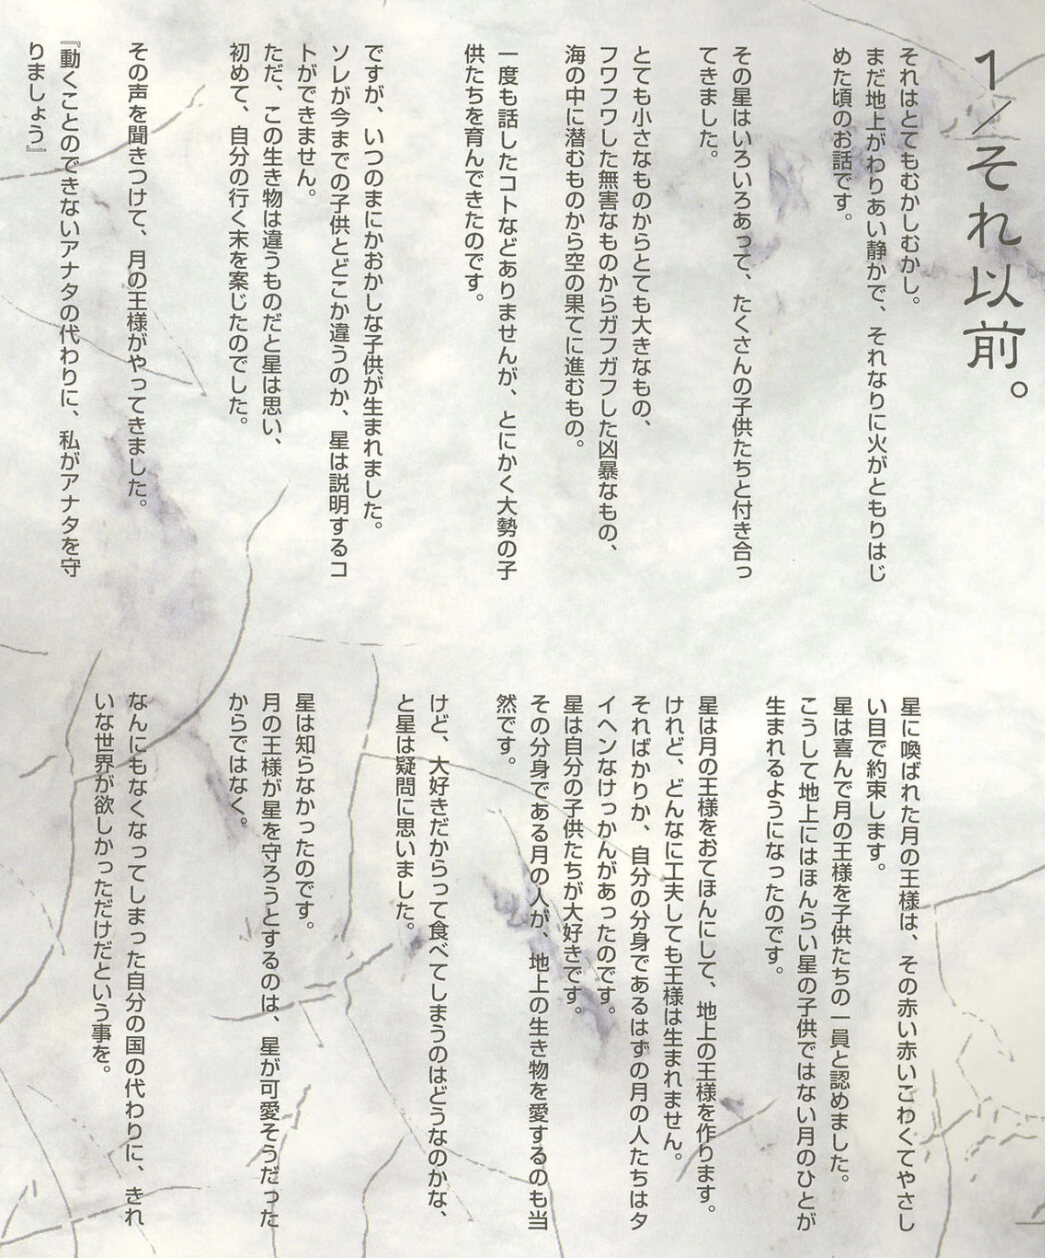 1／それ以前。
それはとてもむかしむかし。
まだ地上がわりあい静かで、それなりに火がともりはじ
めた頃のお話です。
その星はいろいろあって、たくさんの子供たちと付き合っ
てきました。
とても小さなものからとても大きなもの、
フワフワした無害なものからガフガフした凶暴なもの、
海の中に潜むものから空の果てに進むもの。
一度も話したコトなどありませんが、とにかく大勢の子
供たちを育んできたのです。
ですが、いつのまにかおかしな子供が生まれました。
ソレが今までの子供とどこか違うのか、星は説明するコ
トができません。
ただ、この生き物は違うものだと星は思い、
初めて、自分の行く末を案じたのでした。
その声を聞きつけて、月の王様がやってきました。
『動くことのできないアナタの代わりに、私がアナタを守
りましょう』
星に喚ばれた月の王様は、その赤い赤いこわくてやさし
い目で約束します。
星は喜んで月の王様を子供たちの一員と認めました。
こうして地上にはほんらい星の子供ではない月のひとが
生まれるようになったのです。
星は月の王様をおてほんにして、地上の王様を作ります。
けれど、どんなに工夫しても王様は生まれません。
そればかりか、自分の分身であるはずの月の人たちはタ
イヘンなけっかんがあったのです。
星は自分の子供たちが大好きです。
その分身である月の人が、地上の生き物を愛するのも当
然です。
けど、大好きだからって食べてしまうのはどうなのかな、
と星は疑問に思いました。
星は知らなかったのです。
月の王様が星を守ろうとするのは、星が可愛そうだった
からではなく。
なんにもなくなってしまった自分の国の代わりに、きれ
いな世界が欲しかっただけだという事を。